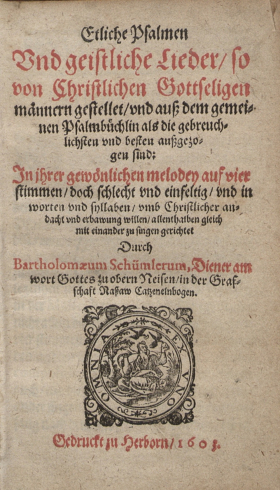 Etliche Psalmen
Vnd geistliche Lieder / so
von Christlichen Gottseligen
männern gestellet / vnd auß dem gemei-
nen Psalmbüchlin als die gebreuch-
lichsten vnd besten außgezo-
gen sind:
In jhrer gewönlichen melodey auf vier
stimmen / doch schlecht vnd einfeltig / vnd in
worten vnd syllaben / vmb Christlicher an-
dacht vnd erbawung willen / allenthalben gleich
mit einander zu singen gerichtet
Durch
Bartholomæum Schümlerum, Diener am
wort Gottes zu obern Neisen / in der Graf-
schafft Naßaw Catzenelnbogen.
OMNIA
Gedruckt zu Herborn / 1603.